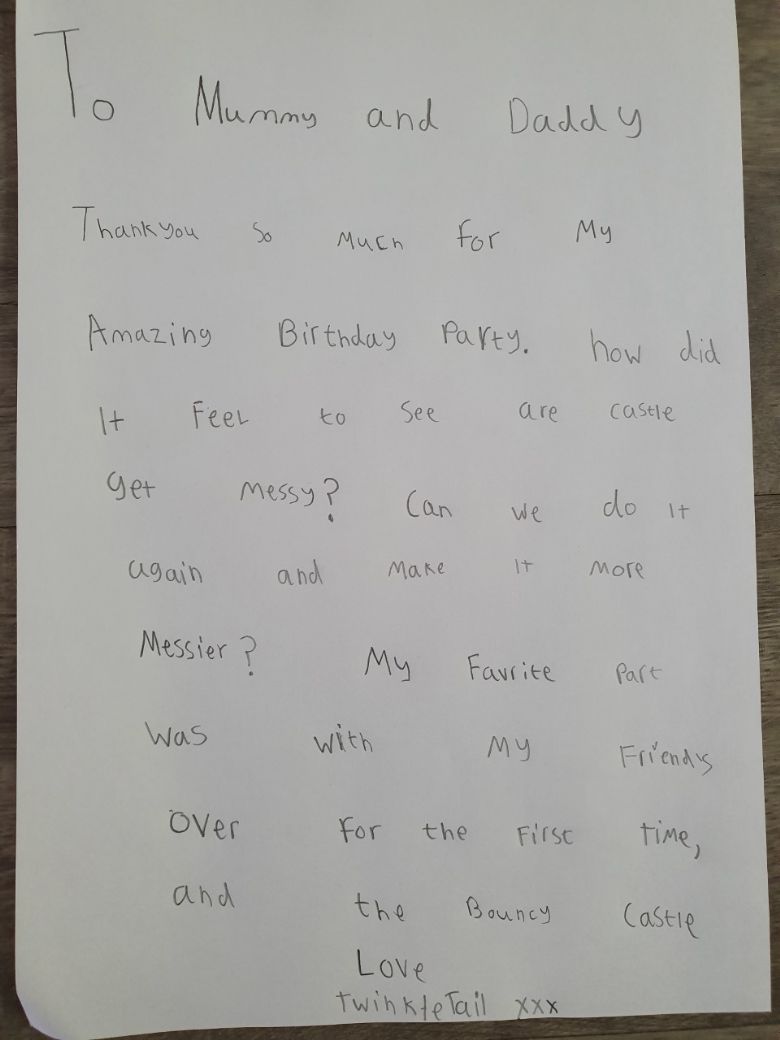 To Mummy and Daddy
Thankyou so Much for My
Amazing Birthday Party. how did
It FeeL to See are castle
get messy? Can we do It
again and make It more
Messier? My Favrite Part
was with My Friends
over for the First time,
and the Bouncy Castle
Love
twinkleTail xxx